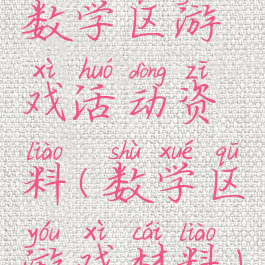 数学区游
xì huó dòng zī
戏活动资
liào shù xué qū
料(数学区
yóu xì cái liào
游戏材料)